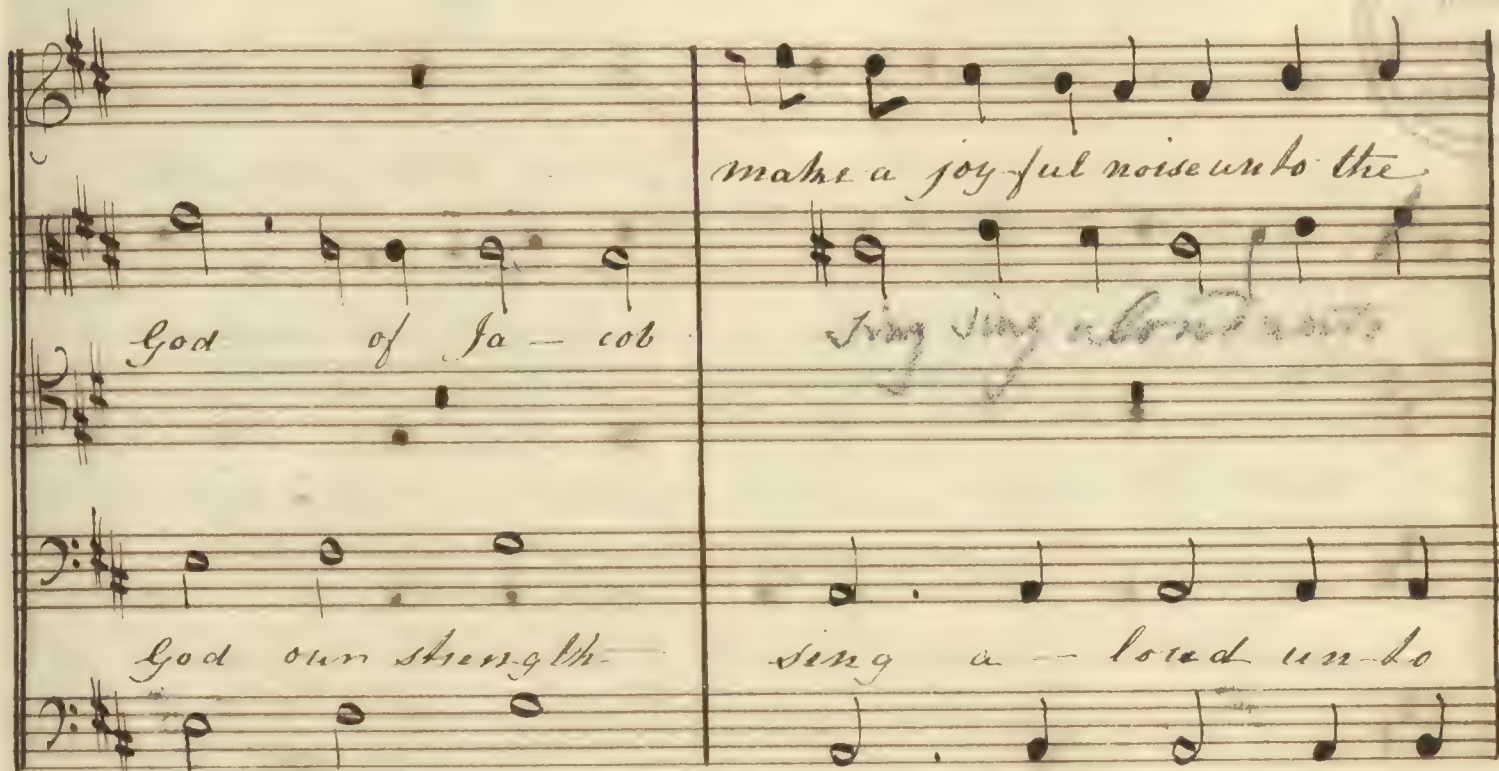 make a joy-ful noise unto the
God of Ja - cob sing sing aloud unto
God our strength sing a - loud un-to